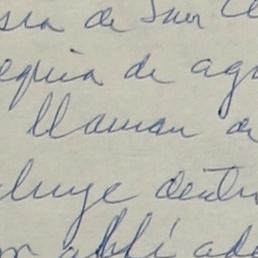 de San
equia de ag
llaman
luye dentr
allí ade